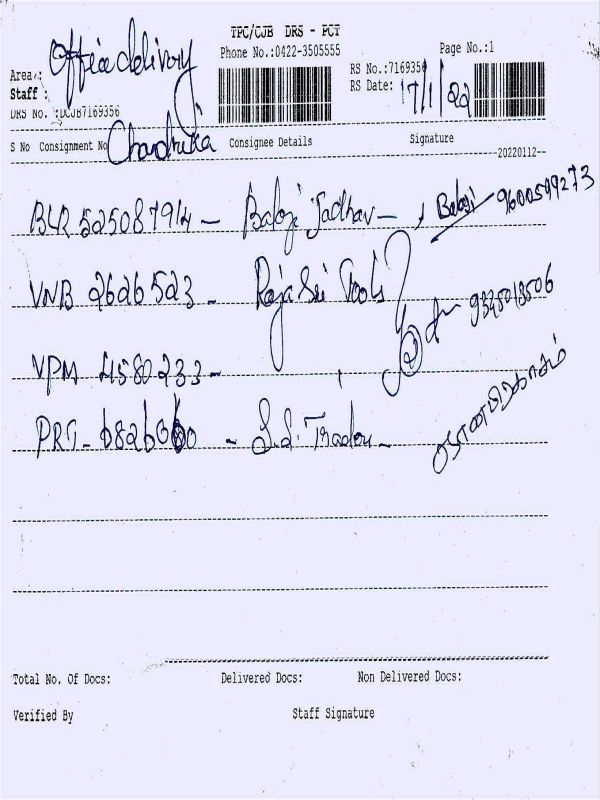 TPC/CJB DRS - PCT
Phone No.:0422-3505555
Page No.:1
Area : Office delivery
RS No.:7169356
Staff :
RS Date: 17/1/22
DRS No. :DCJB7169356
Chandrika
S No Consignment No Consignee Details Signature
--20220112--
BLR 525087914 - Balaji Jadhav - Balaji 9600599273
VNB 2626523 - Raja Sri Tools 9345013506
VPM 4580233 -
PRT - - S.S. Traders -
Total No. Of Docs: Delivered Docs: Non Delivered Docs:
Verified By Staff Signature